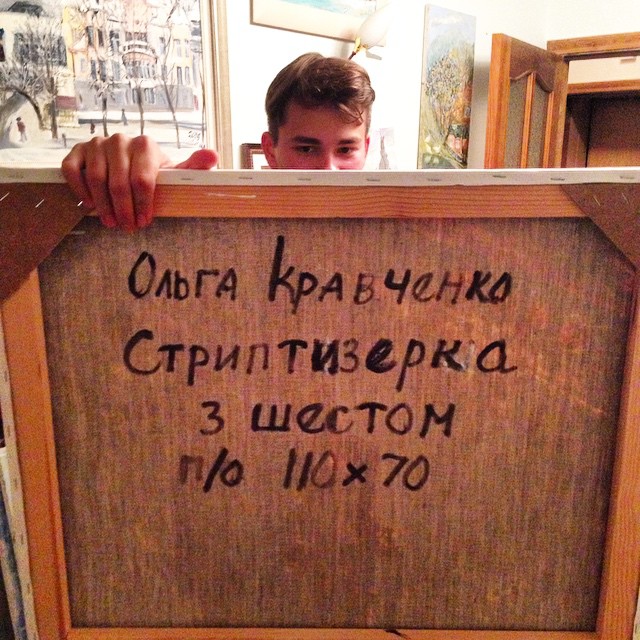 Ольга Кравченко
Стриптизерка
з шестом
п/о 110×70